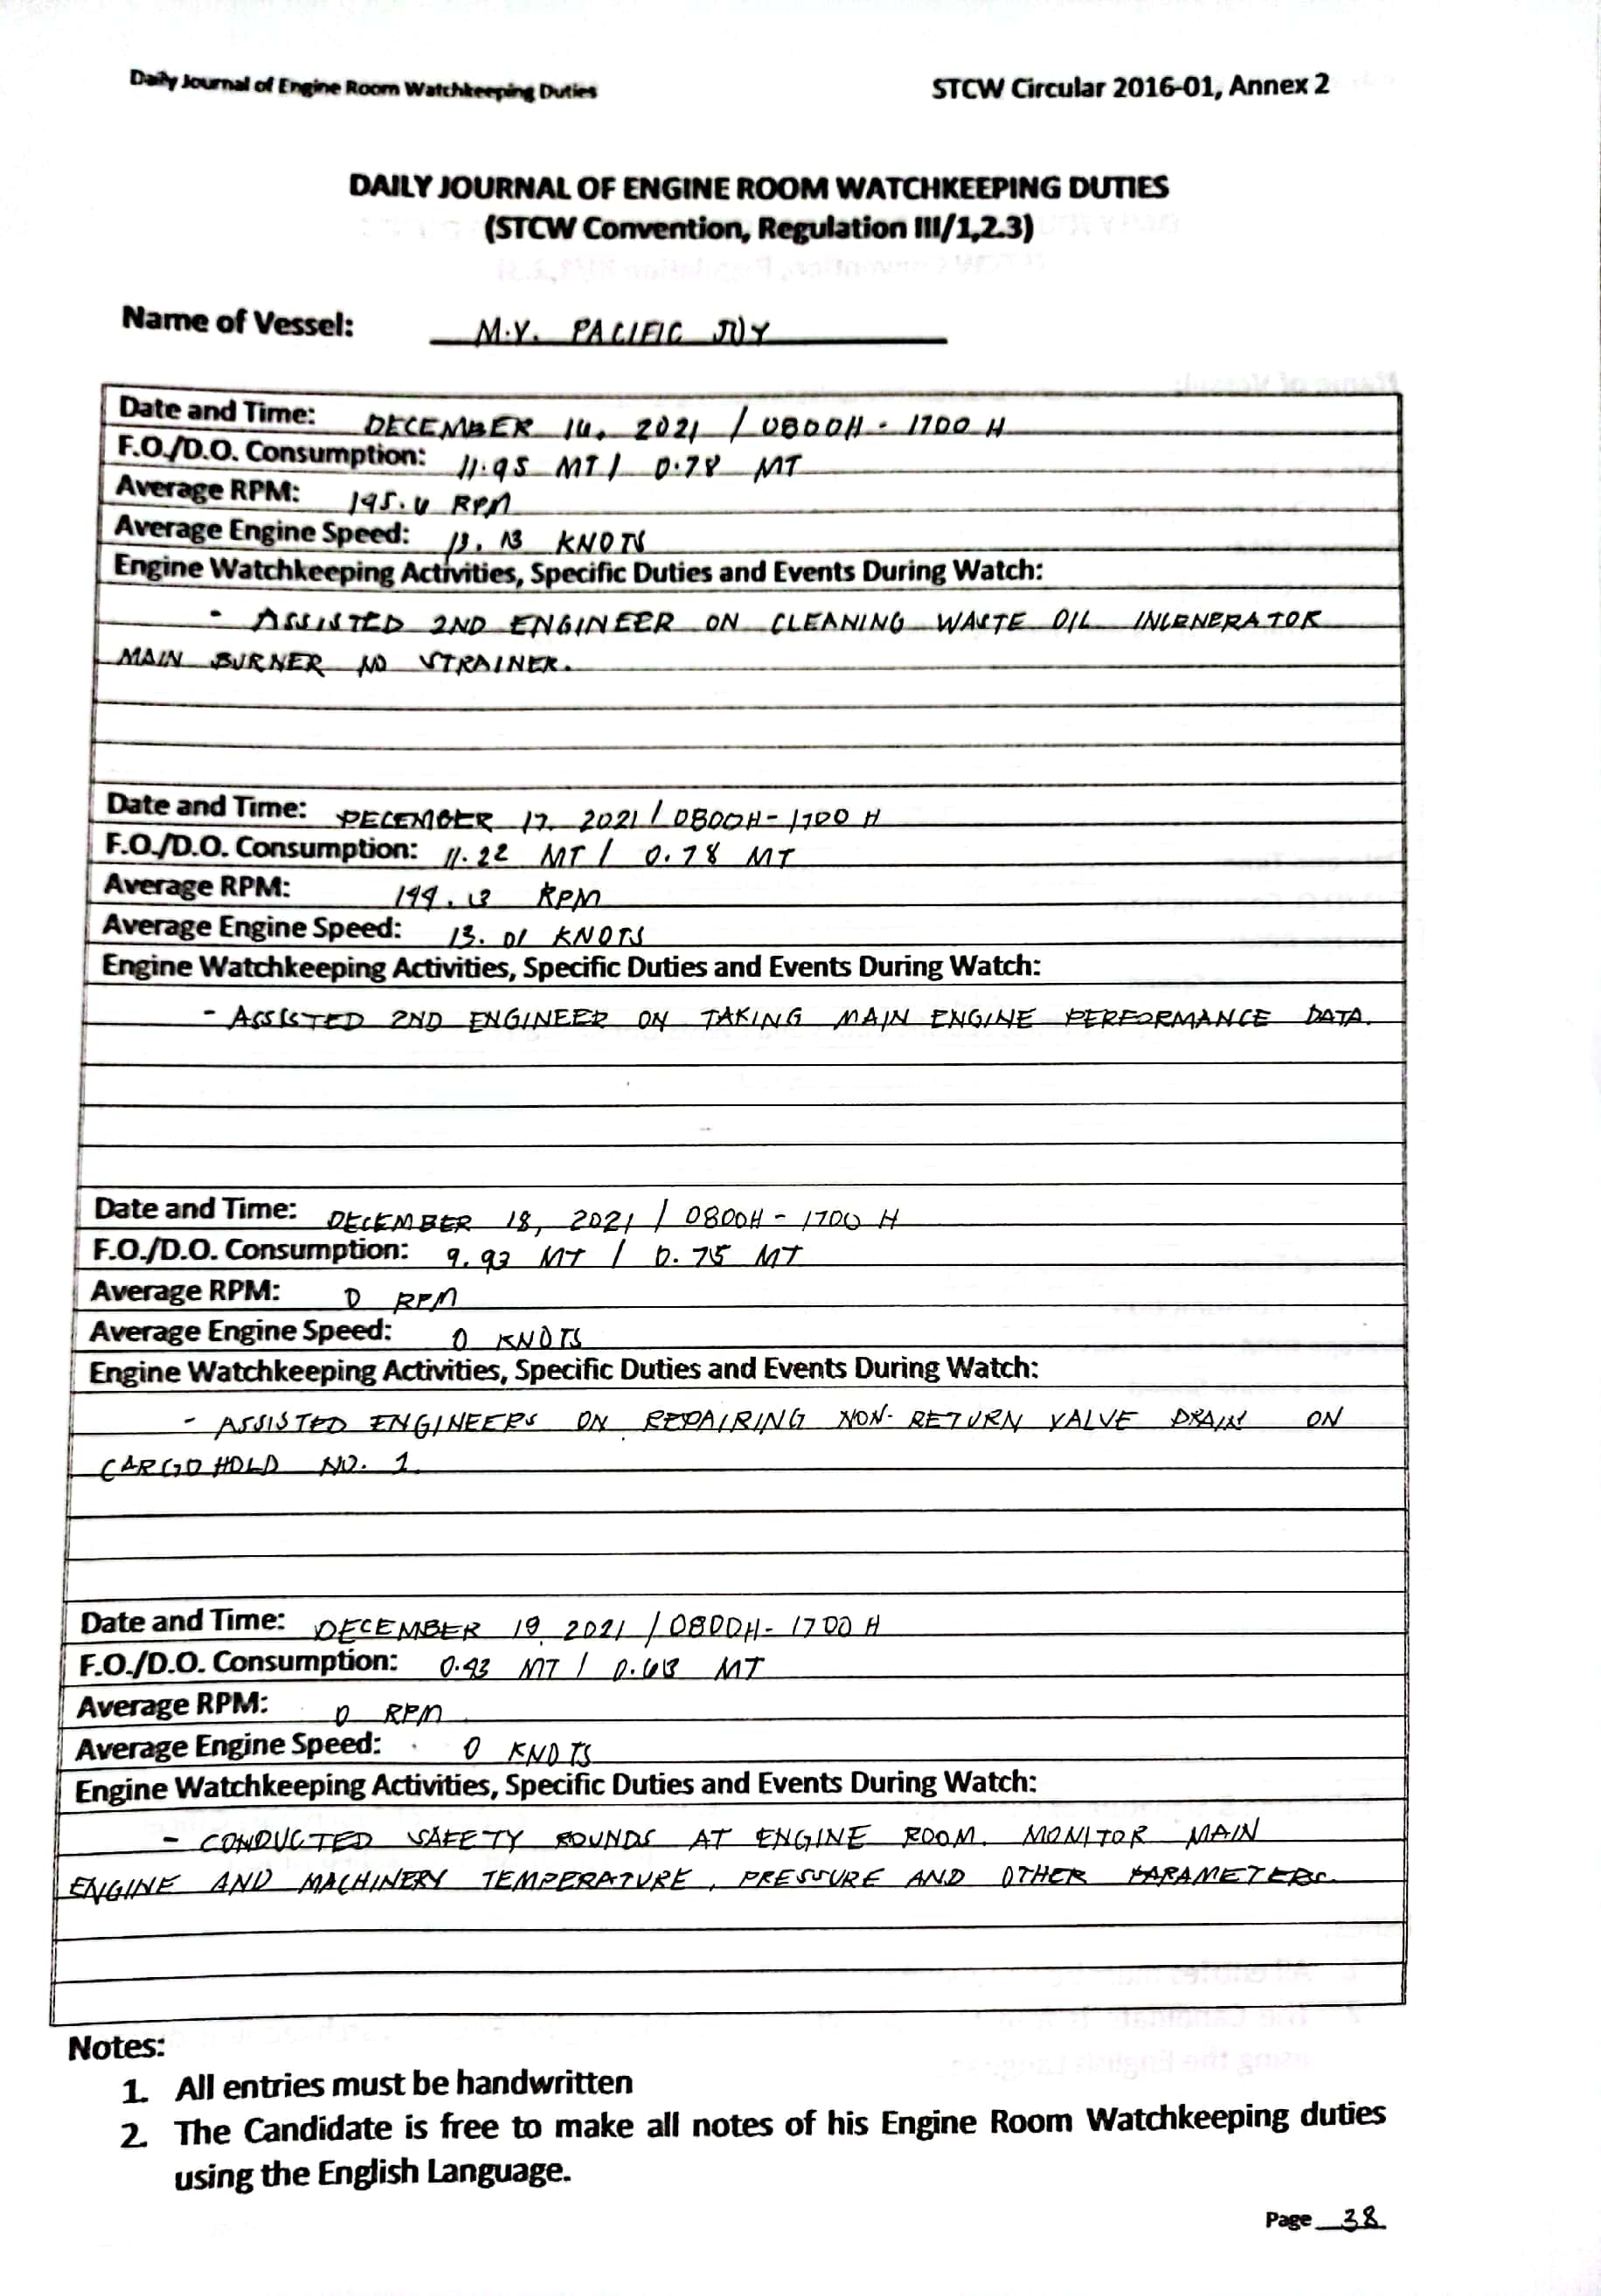 Daily Journal of Engine Room Watchkeeping Duties
STCW Circular 2016-01, Annex 2
DAILY JOURNAL OF ENGINE ROOM WATCHKEEPING DUTIES
(STCW Convention, Regulation III/1,2.3)
Name of Vessel: M.V. PACIFIC JOY
Date and Time: DECEMBER 16, 2021 / 0800H - 1700 H
F.O./D.O. Consumption: 11.95 MT / 0.78 MT
Average RPM: RPM
Average Engine Speed: 13.13 KNOTS
Engine Watchkeeping Activities, Specific Duties and Events During Watch:
- ASSISTED 2ND ENGINEER ON CLEANING WASTE OIL INCENERATOR
MAIN BURNER STRAINER.
Date and Time: DECEMBER 17, 2021 / 0800H - 1700 H
F.O./D.O. Consumption: 11.22 MT / 0.78 MT
Average RPM: RPM
Average Engine Speed: 13.01 KNOTS
Engine Watchkeeping Activities, Specific Duties and Events During Watch:
- ASSISTED 2ND ENGINEER ON TAKING MAIN ENGINE PERFORMANCE DATA.
Date and Time: DECEMBER 18, 2021 / 0800H - 1700 H
F.O./D.O. Consumption: 9.93 MT / 0.75 MT
Average RPM: 0 RPM
Average Engine Speed: 0 KNOTS
Engine Watchkeeping Activities, Specific Duties and Events During Watch:
- ASSISTED ENGINEERS ON REPAIRING NON-RETURN VALVE DRAIN ON
CARGO HOLD NO. 1.
Date and Time: DECEMBER 19, 2021 / 0800H - 1700 H
F.O./D.O. Consumption: 0.93 MT / 0.63 MT
Average RPM: 0 RPM
Average Engine Speed: 0 KNOTS
Engine Watchkeeping Activities, Specific Duties and Events During Watch:
- CONDUCTED SAFETY ROUNDS AT ENGINE ROOM. MONITOR MAIN
ENGINE AND MACHINERY TEMPERATURE, PRESSURE AND OTHER PARAMETERS.
Notes:
1. All entries must be handwritten
2. The Candidate is free to make all notes of his Engine Room Watchkeeping duties
using the English Language.
Page 38